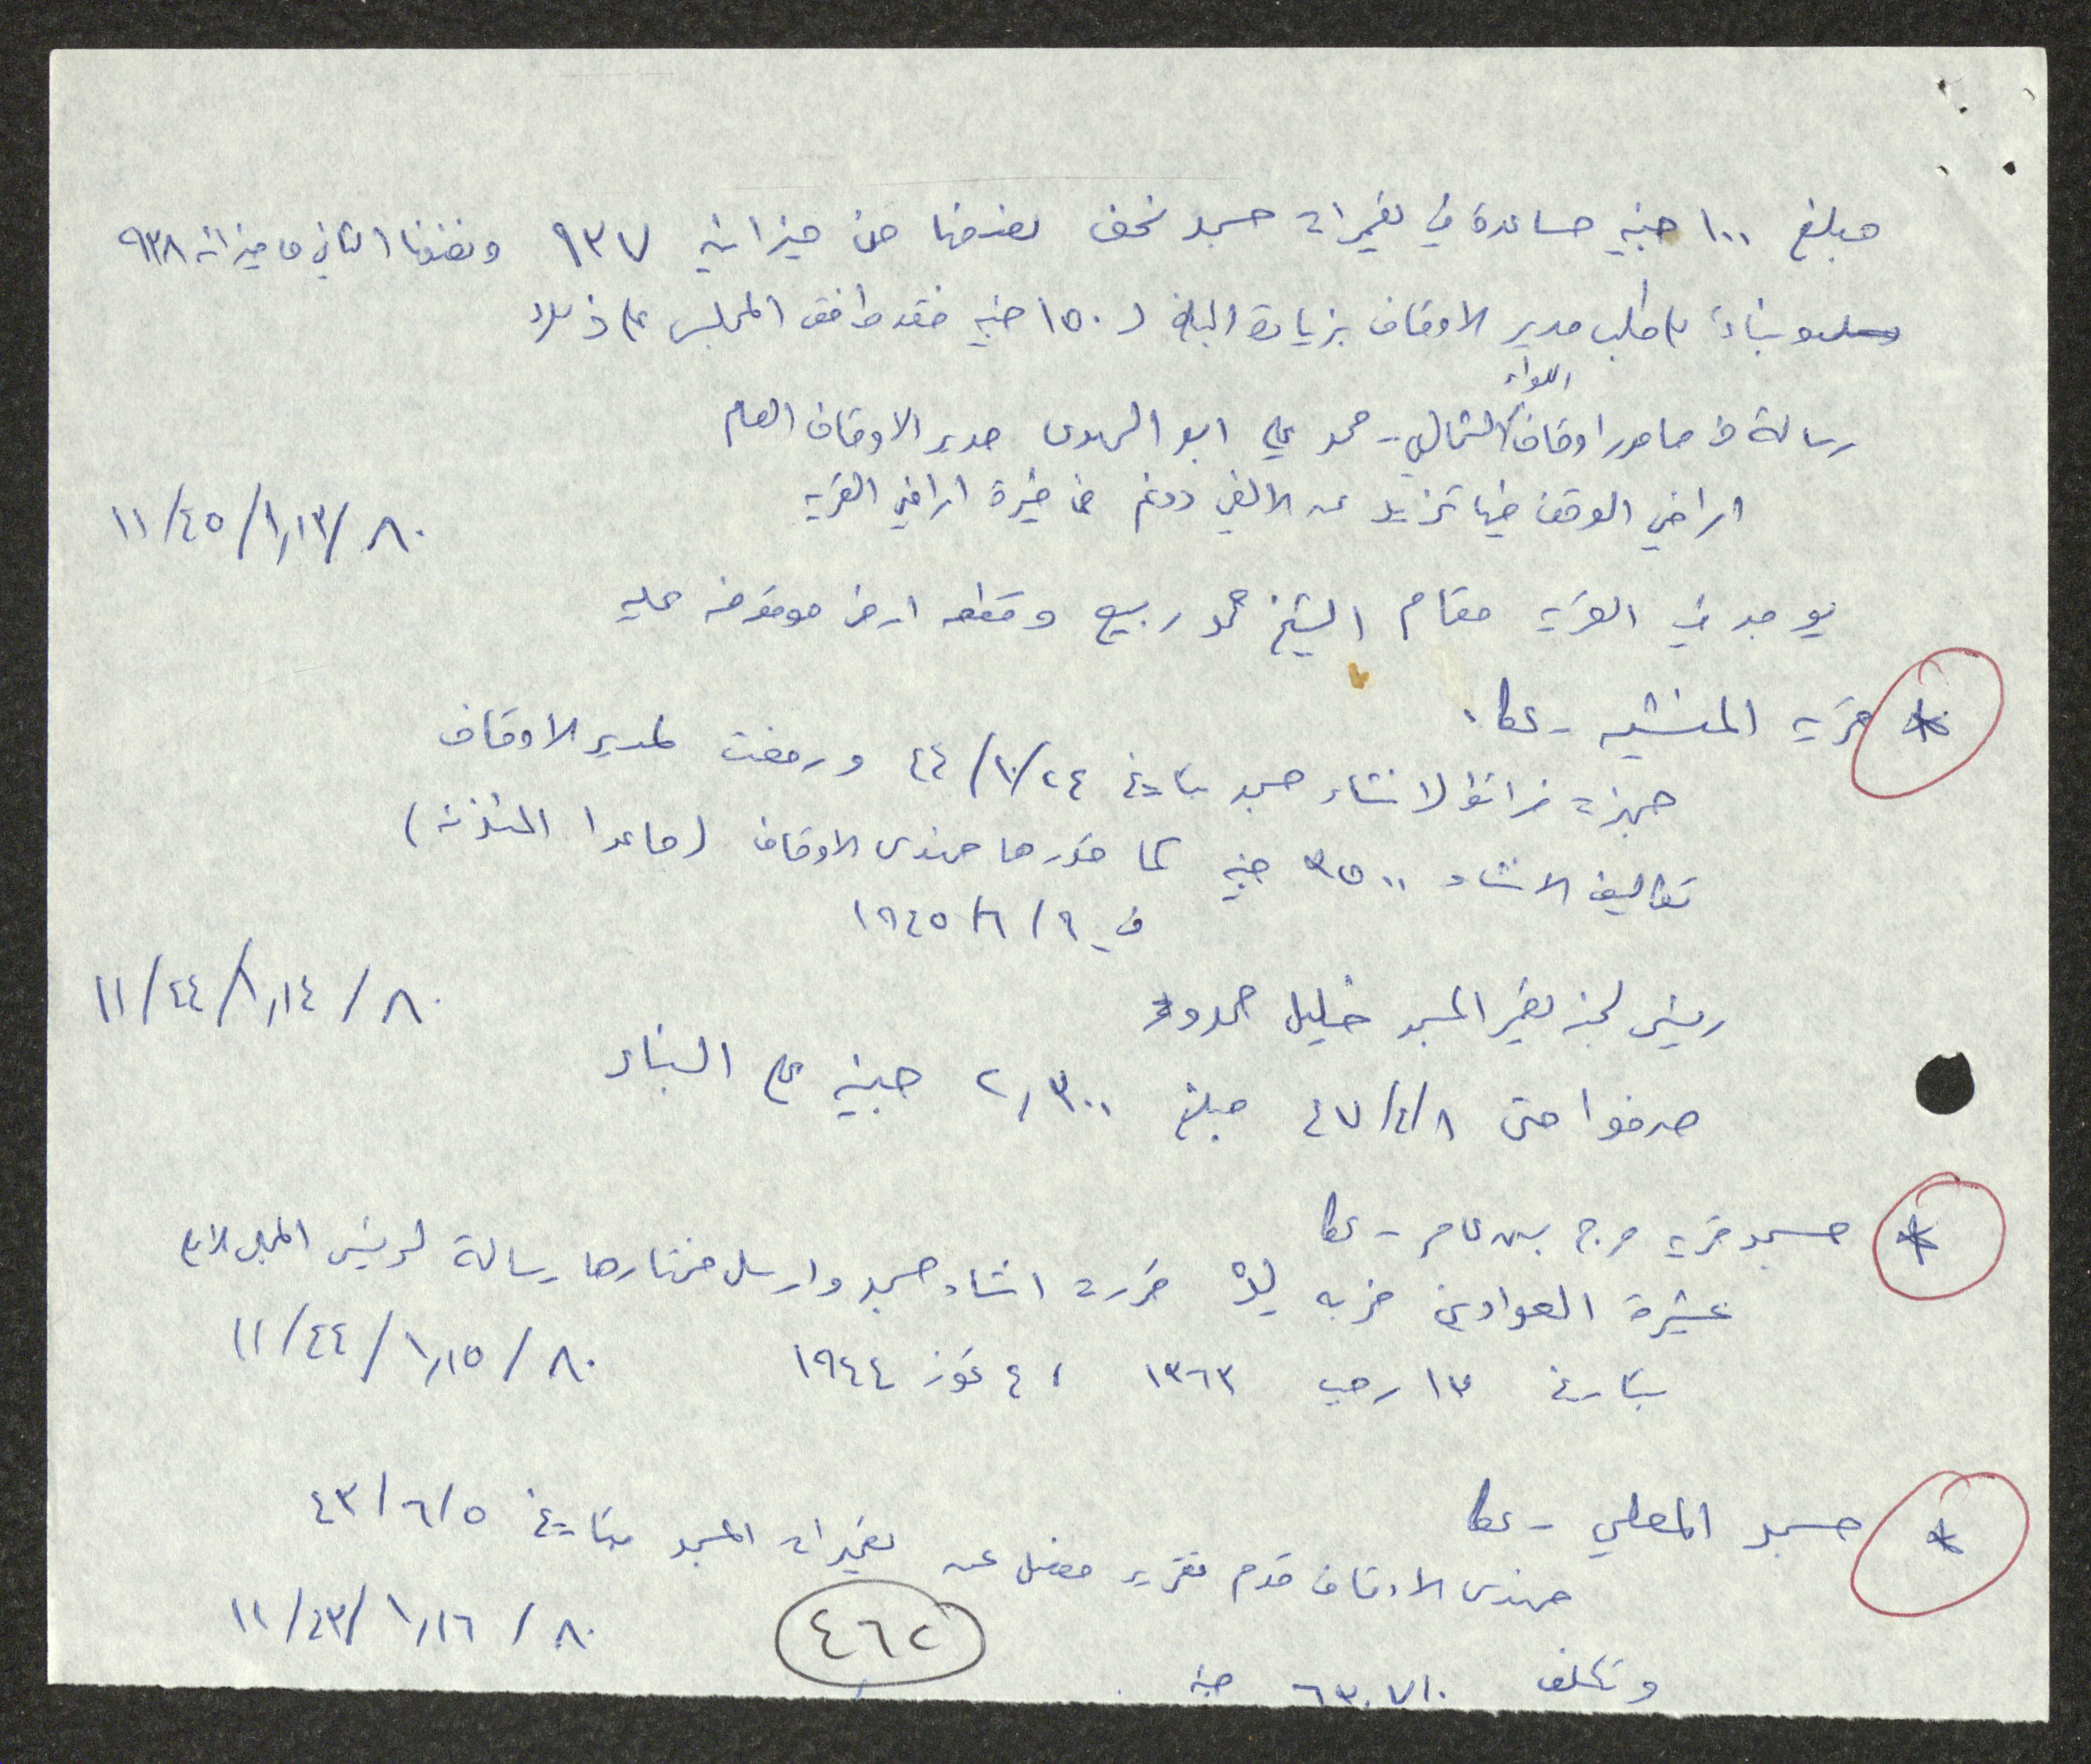 مبلغ ١٠٠ جنيه مساعدة في تعميرات مسجد نحف نصفها من ميزانية ٩٣٧ ونصفها الثاني من ميزانية ٩٣٨
وبناءً على طلب مدير الاوقاف بزيادة المبلغ لـ ١٥٠ جنيه فقد وافق المجلس على ذلك
رسالة من مامور اوقاف اللواء الشمالي - محمد علي ابو الهدى مدير الاوقاف العام
اراضي الوقف فيها تزيد عن الالفي دونم من خيرة اراضي القرية
٨٠/١,١٣/٤٥/١١
يوجد في القرية مقام الشيخ محمد ربيع وقطعة ارض موقوفة عليه
* قرية المنشية - عكا.
جهزت خرائط لانشاء مسجد بتاريخ ٢٤/١٠/٤٤ ورفعت لمدير الاوقاف
تكاليف الانشاء ٣٥٠٠ جنيه كما قدرها مهندس الاوقاف (ما عدا المئذنة)
في ٩/٦/١٩٤٥
رئيس لجنة تعمير المسجد خليل حمدو
٨٠/١,١٤/٤٤/١١
صرفوا حتى ٨/٤/٤٧ مبلغ ٢,٣٠٠ جنيه على البناء
* مسجد قرية مرج بن عامر - عكا
عشيرة العوادين خربة قررت انشاء مسجد وارسل مختارها رسالة لرئيس المجلس الاعلى
بتاريخ ١٣ رجب ١٣٦٣ ، ٤ تموز ١٩٤٤
٨٠/١,١٥/٤٤/١١
* مسجد المعلي - عكا
مهندس الاوقاف قدم تقرير مفصل عن تعميرات المسجد بتاريخ ٥/٦/٤٣
٨٠/١,١٦/٤٣/١١
وتكلف ٦٣,٧١٠ جنيه
٤٦٢